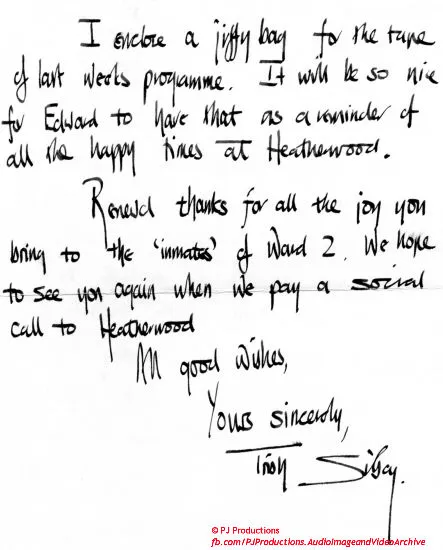 I enclose a jiffy bag for the tape
of last weeks programme. It will be so nice
for Edward to have that as a reminder of
all the happy times at Heatherwood.
Renewed thanks for all the joy you
bring to the 'inmates' of Ward 2. We hope
to see you again when we pay a social
call to Heatherwood
All good wishes,
Yours sincerely,
© PJ Productions
fb.com/PJProductions.AudioImageandVideoArchive